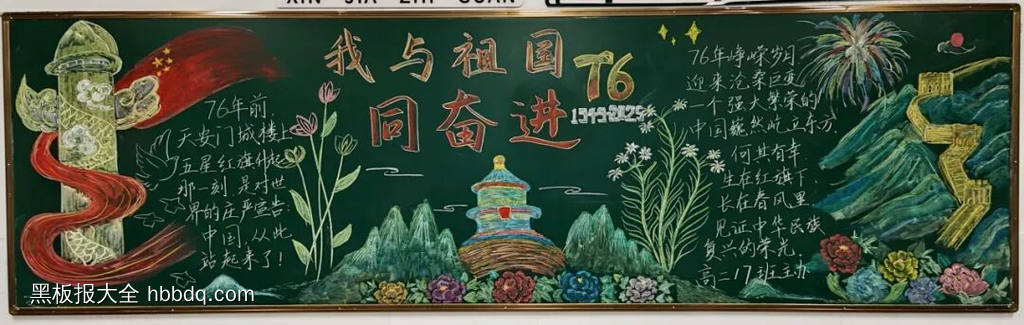 XIN JIA ZHI GUAN
我与祖国
同奋进
76
1949-2025
76年前
天安门城楼上
五星红旗升起
那一刻 是对世
界的庄严宣告
中国，从此
站起来了！
76年峥嵘岁月
迎来沧桑巨变
一个强大繁荣的
中国巍然屹立东方
何其有幸
生在红旗下
长在春风里
见证中华民族
复兴的荣光
高二17班主办
黑板报大全 hbbdq.com